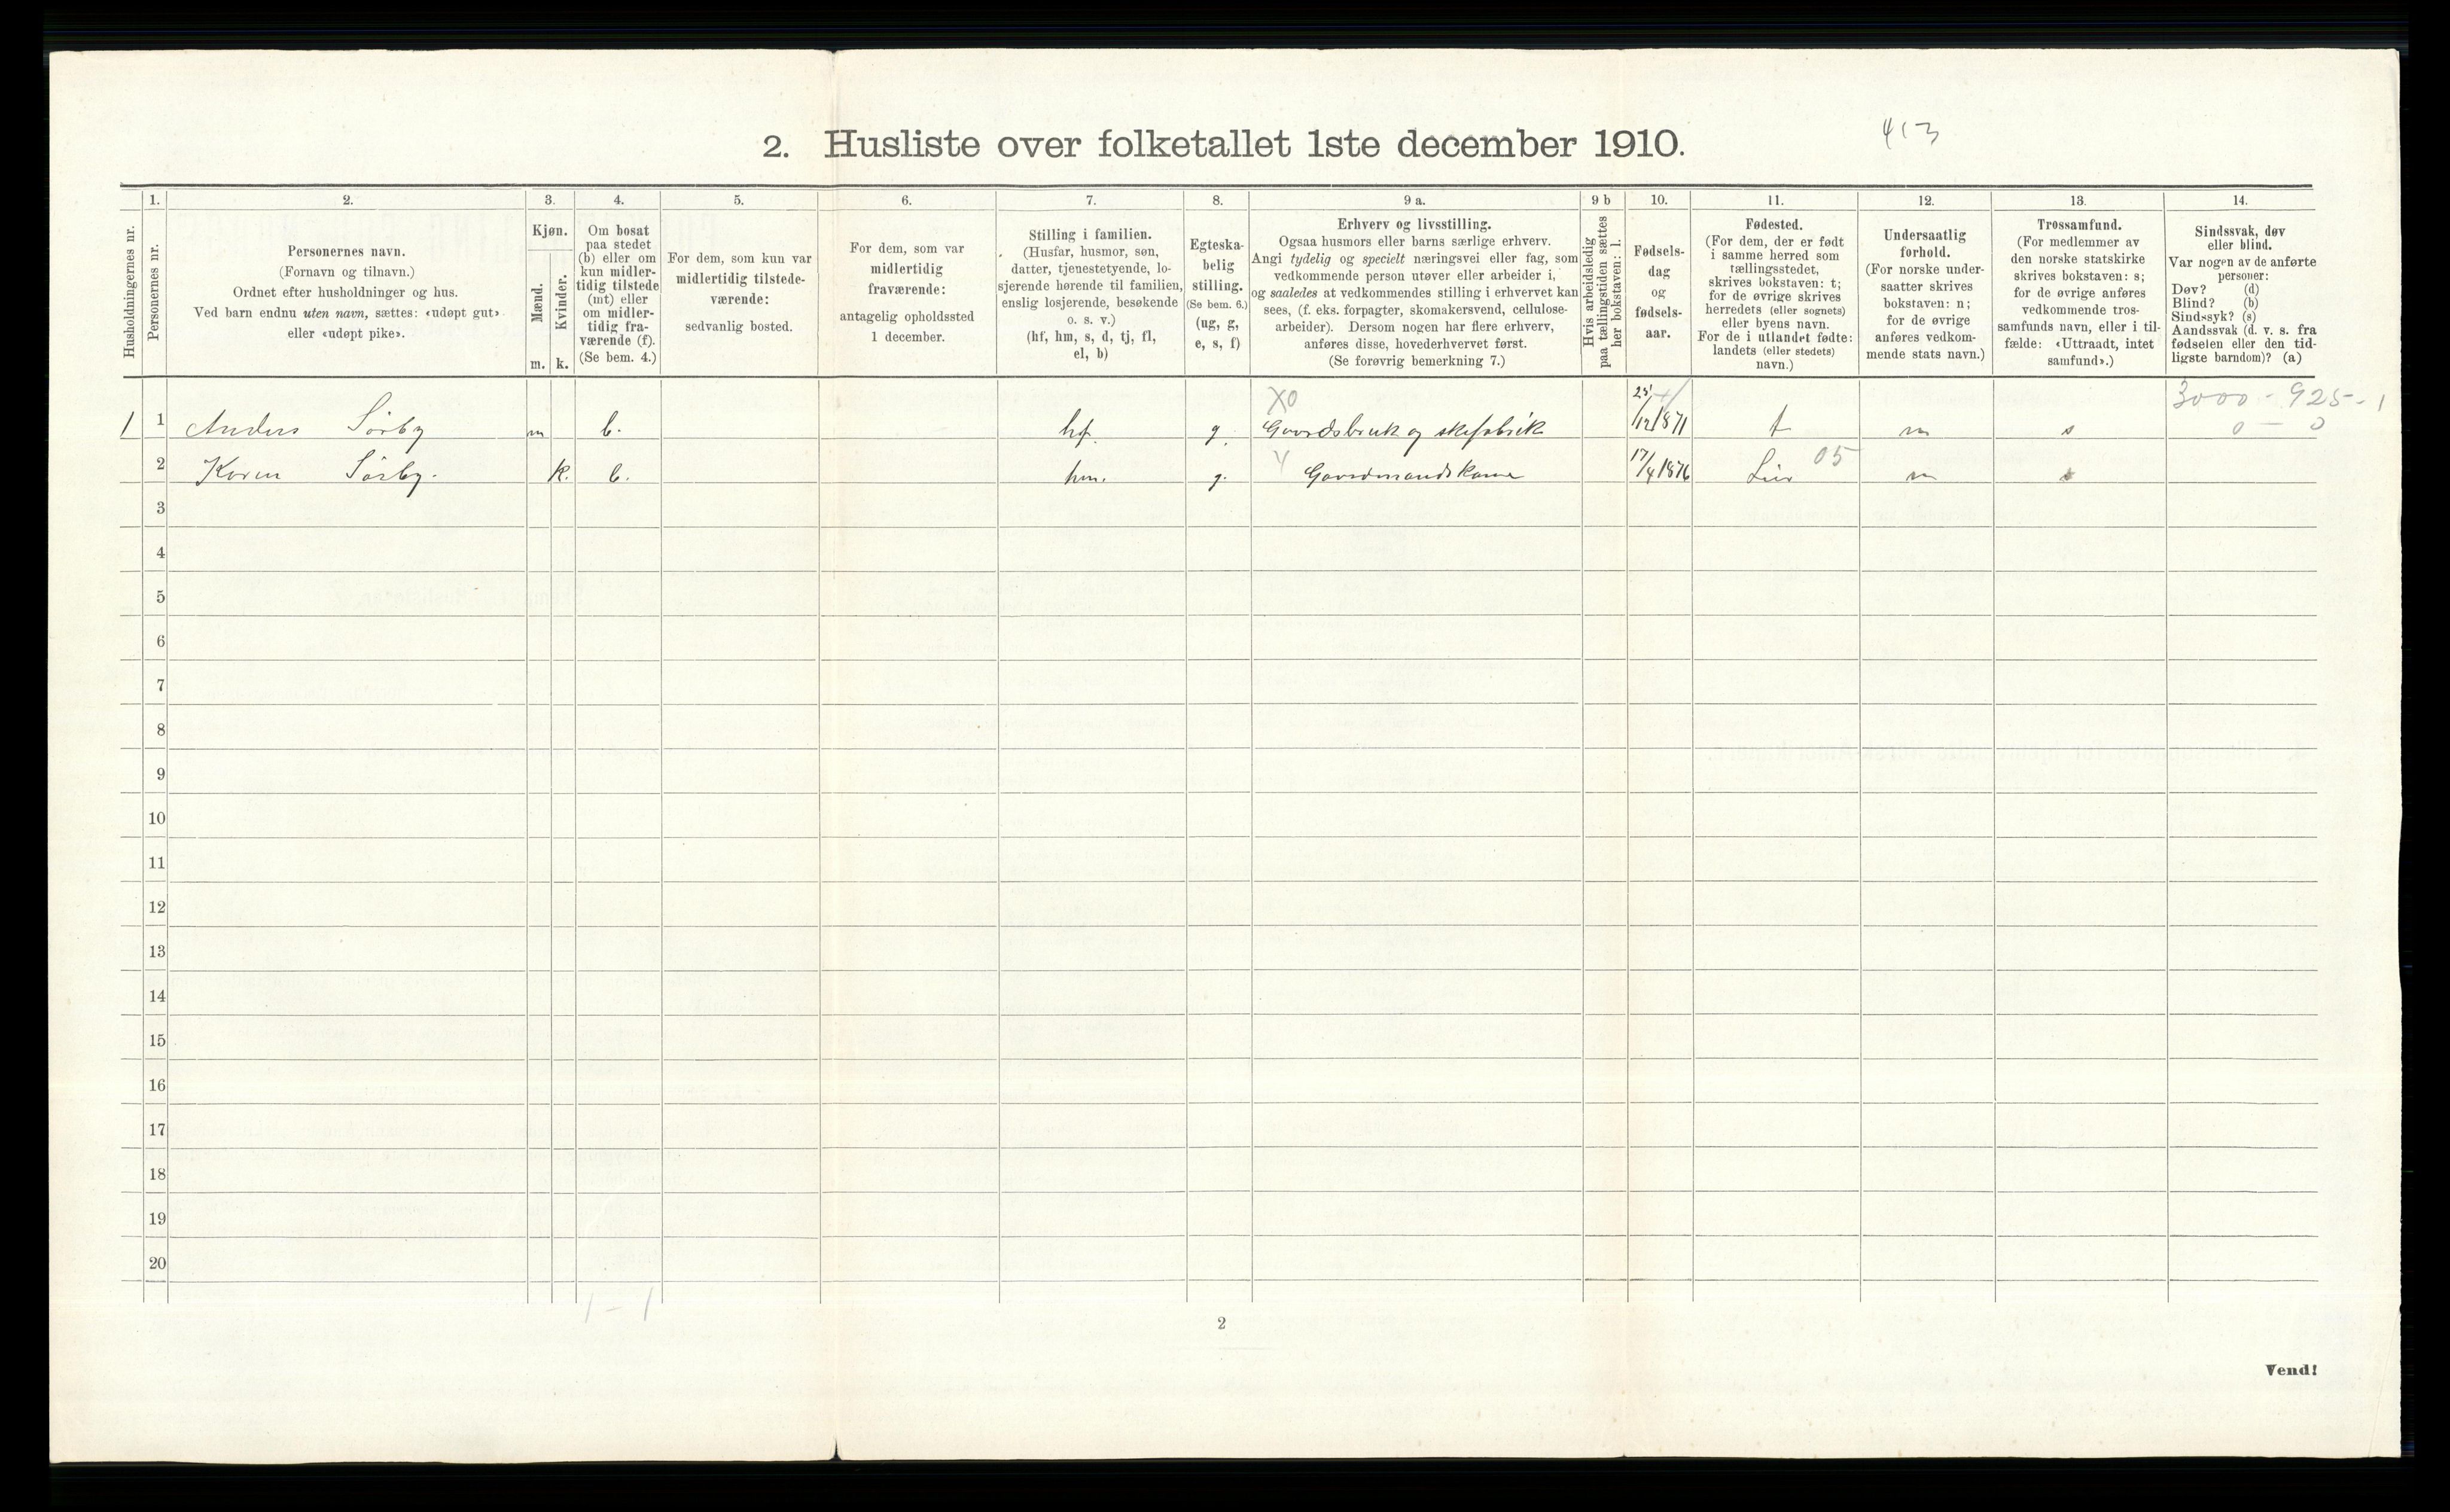 2. Husliste over folketallet 1ste december 1910.
413
Husholdningernes nr.
1.
Personernes nr.
2.
Personernes navn.
(Fornavn og tilnavn.)
Ordnet efter husholdninger og hus.
Ved barn endnu uten navn, sættes: «udøpt gut»
eller «udøpt pike».
3.
Kjøn.
Mænd.
m.
Kvinder.
k.
4.
Om bosat
paa stedet
(b) eller om
kun midler-
tidig tilstede
(mt) eller
om midler-
tidig fra-
værende (f).
(Se bem. 4.)
5.
For dem, som kun var
midlertidig tilstede-
værende:
sedvanlig bosted.
6.
For dem, som var
midlertidig
fraværende:
antagelig opholdssted
1 december.
7.
Stilling i familien.
(Husfar, husmor, søn,
datter, tjenestetyende, lo-
sjerende hørende til familien,
enslig losjerende, besøkende
o. s. v.)
(hf, hm, s, d, tj, fl,
el, b)
8.
Egteska-
belig
stilling.
(Se bem. 6.)
(ug, g,
e, s, f)
9 a.
Erhverv og livsstilling.
Ogsaa husmors eller barns særlige erhverv.
Angi tydelig og specielt næringsvei eller fag, som
vedkommende person utøver eller arbeider i,
og saaledes at vedkommendes stilling i erhvervet kan
sees, (f. eks. forpagter, skomakersvend, cellulose-
arbeider). Dersom nogen har flere erhverv,
anføres disse, hovederhvervet først.
(Se forøvrig bemerkning 7.)
9 b
Hvis arbeidsledig
paa tællingstiden sættes
her bokstaven: l.
10.
Fødsels-
dag
og
fødsels-
aar.
11.
Fødested.
(For dem, der er født
i samme herred som
tællingsstedet,
skrives bokstaven: t;
for de øvrige skrives
herredets (eller sognets)
eller byens navn.
For de i utlandet fødte:
landets (eller stedets)
navn.)
12.
Undersaatlig
forhold.
(For norske under-
saatter skrives
bokstaven: n;
for de øvrige
anføres vedkom-
mende stats navn.)
13.
Trossamfund.
(For medlemmer av
den norske statskirke
skrives bokstaven: s;
for de øvrige anføres
vedkommende tros-
samfunds navn, eller i til-
fælde: «Uttraadt, intet
samfund».)
14.
Sindssvak, døv
eller blind.
Var nogen av de anførte
personer:
Døv? (d)
Blind? (b)
Sindssyk? (s)
Aandssvak (d. v. s. fra
fødselen eller den tid-
ligste barndom)? (a)
XO 3000 - 925 - 1
1 1 Anders Sørby m b. hf. g. Gaardsbruk og skifabrik 25/12 1871 t n s 0 - 0
2 Karen Sørby. k. b. hm. g. Y Gaardmandskone 17/4 1876 Lier 05 n s
3
4
5
6
7
8
9
10
11
12
13
14
15
16
17
18
19
20
1 - 1
2
Vend!